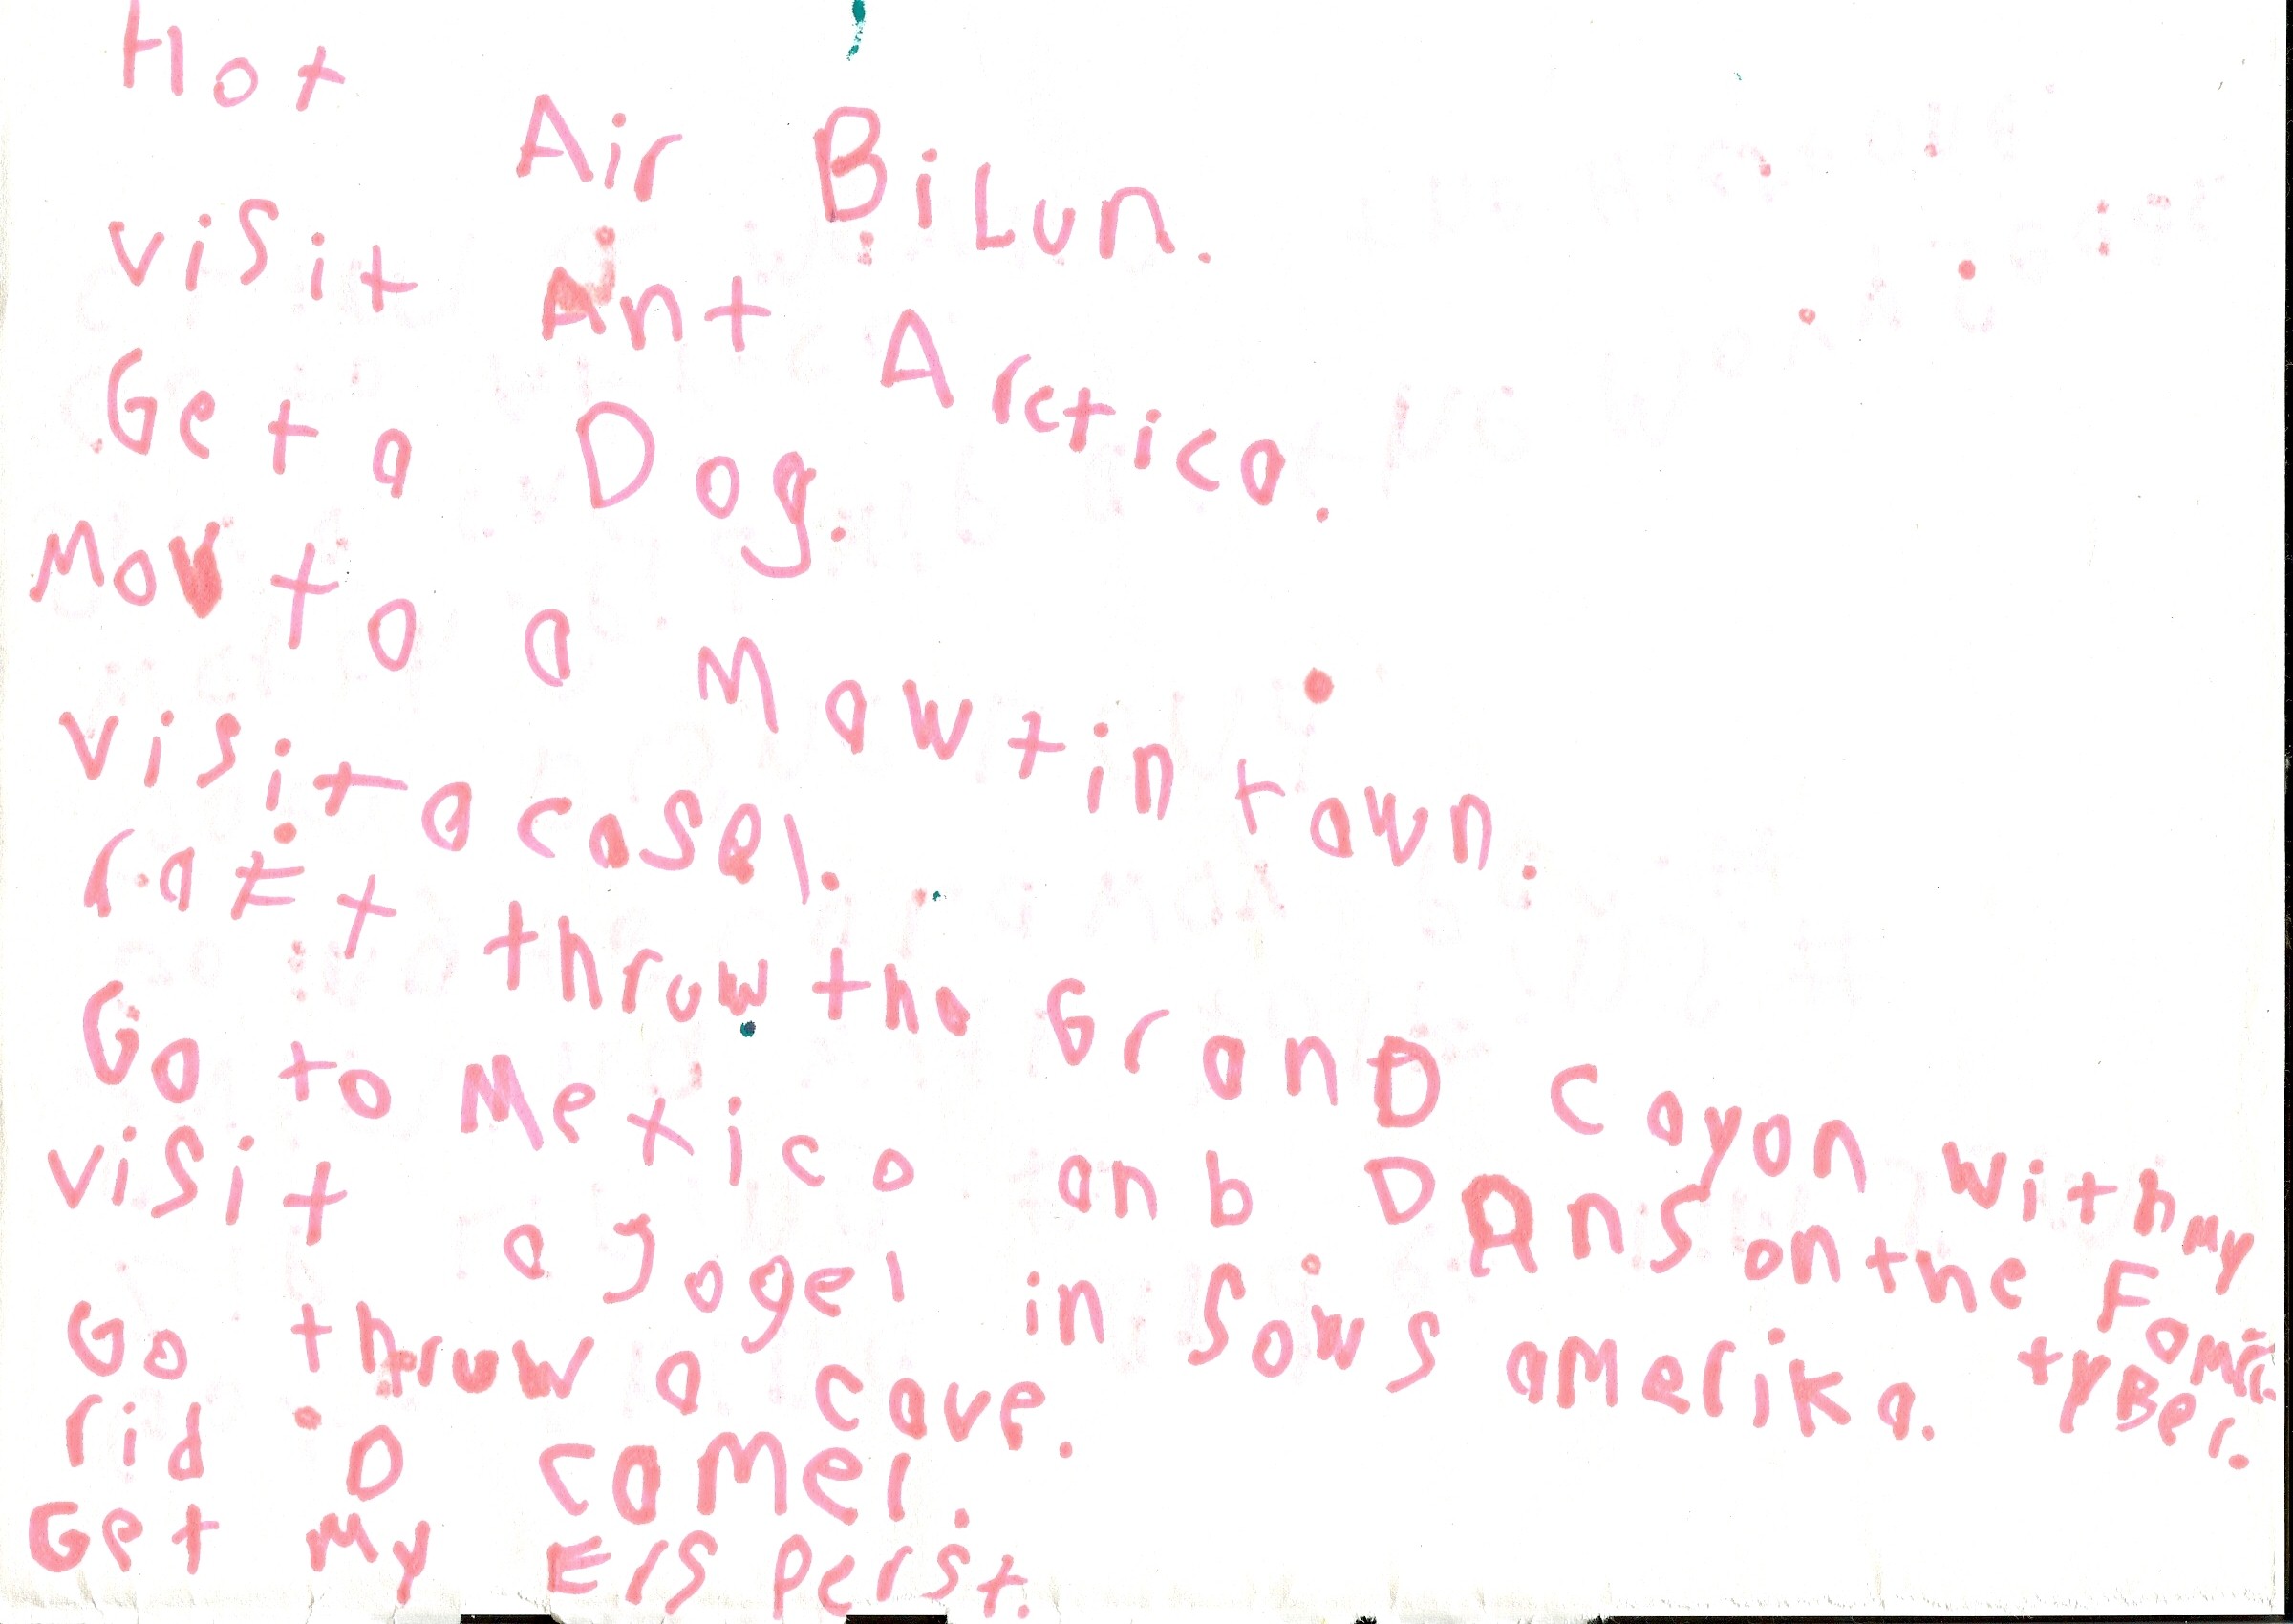 Hot Air BiLun.
visit Ant Arctica.
Get a Dog.
Mov to a Mawtin tawn.
visit a casel.
raft thruw tha GranD cayon with my Famil.
Go to Mexico anb DAns on the tyBer.
visit a jogel in Sows amerika.
Go thruw a cave.
rid a camel.
Get my Ers perst.